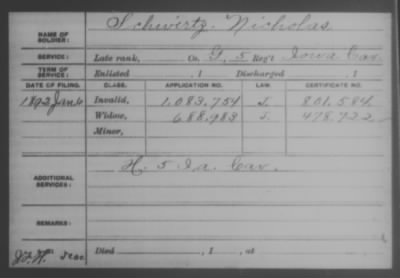 NAME OF SOLDIER: Schwirtz, Nicholas
SERVICE: Late rank, Co. G, 5 Reg't Iowa Cav.
TERM OF SERVICE: Enlisted , 1 Discharged , 1
DATE OF FILING. CLASS. APPLICATION NO. LAW. CERTIFICATE NO.
1892 Jan 6 Invalid, 1.083.754 J. 801.584.
Widow, 688.983 J. 478.722
Minor,
ADDITIONAL SERVICES: H. 5 Ia. Cav.
REMARKS:
Died , 1 , at